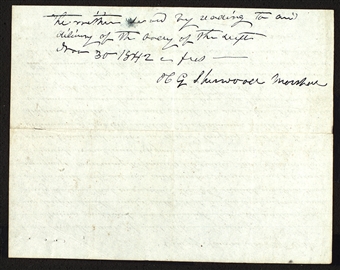 The within served by reading to and
delivery of the copy of the deft
Nov 30 1842 as pres
H G Sherwood Marshal